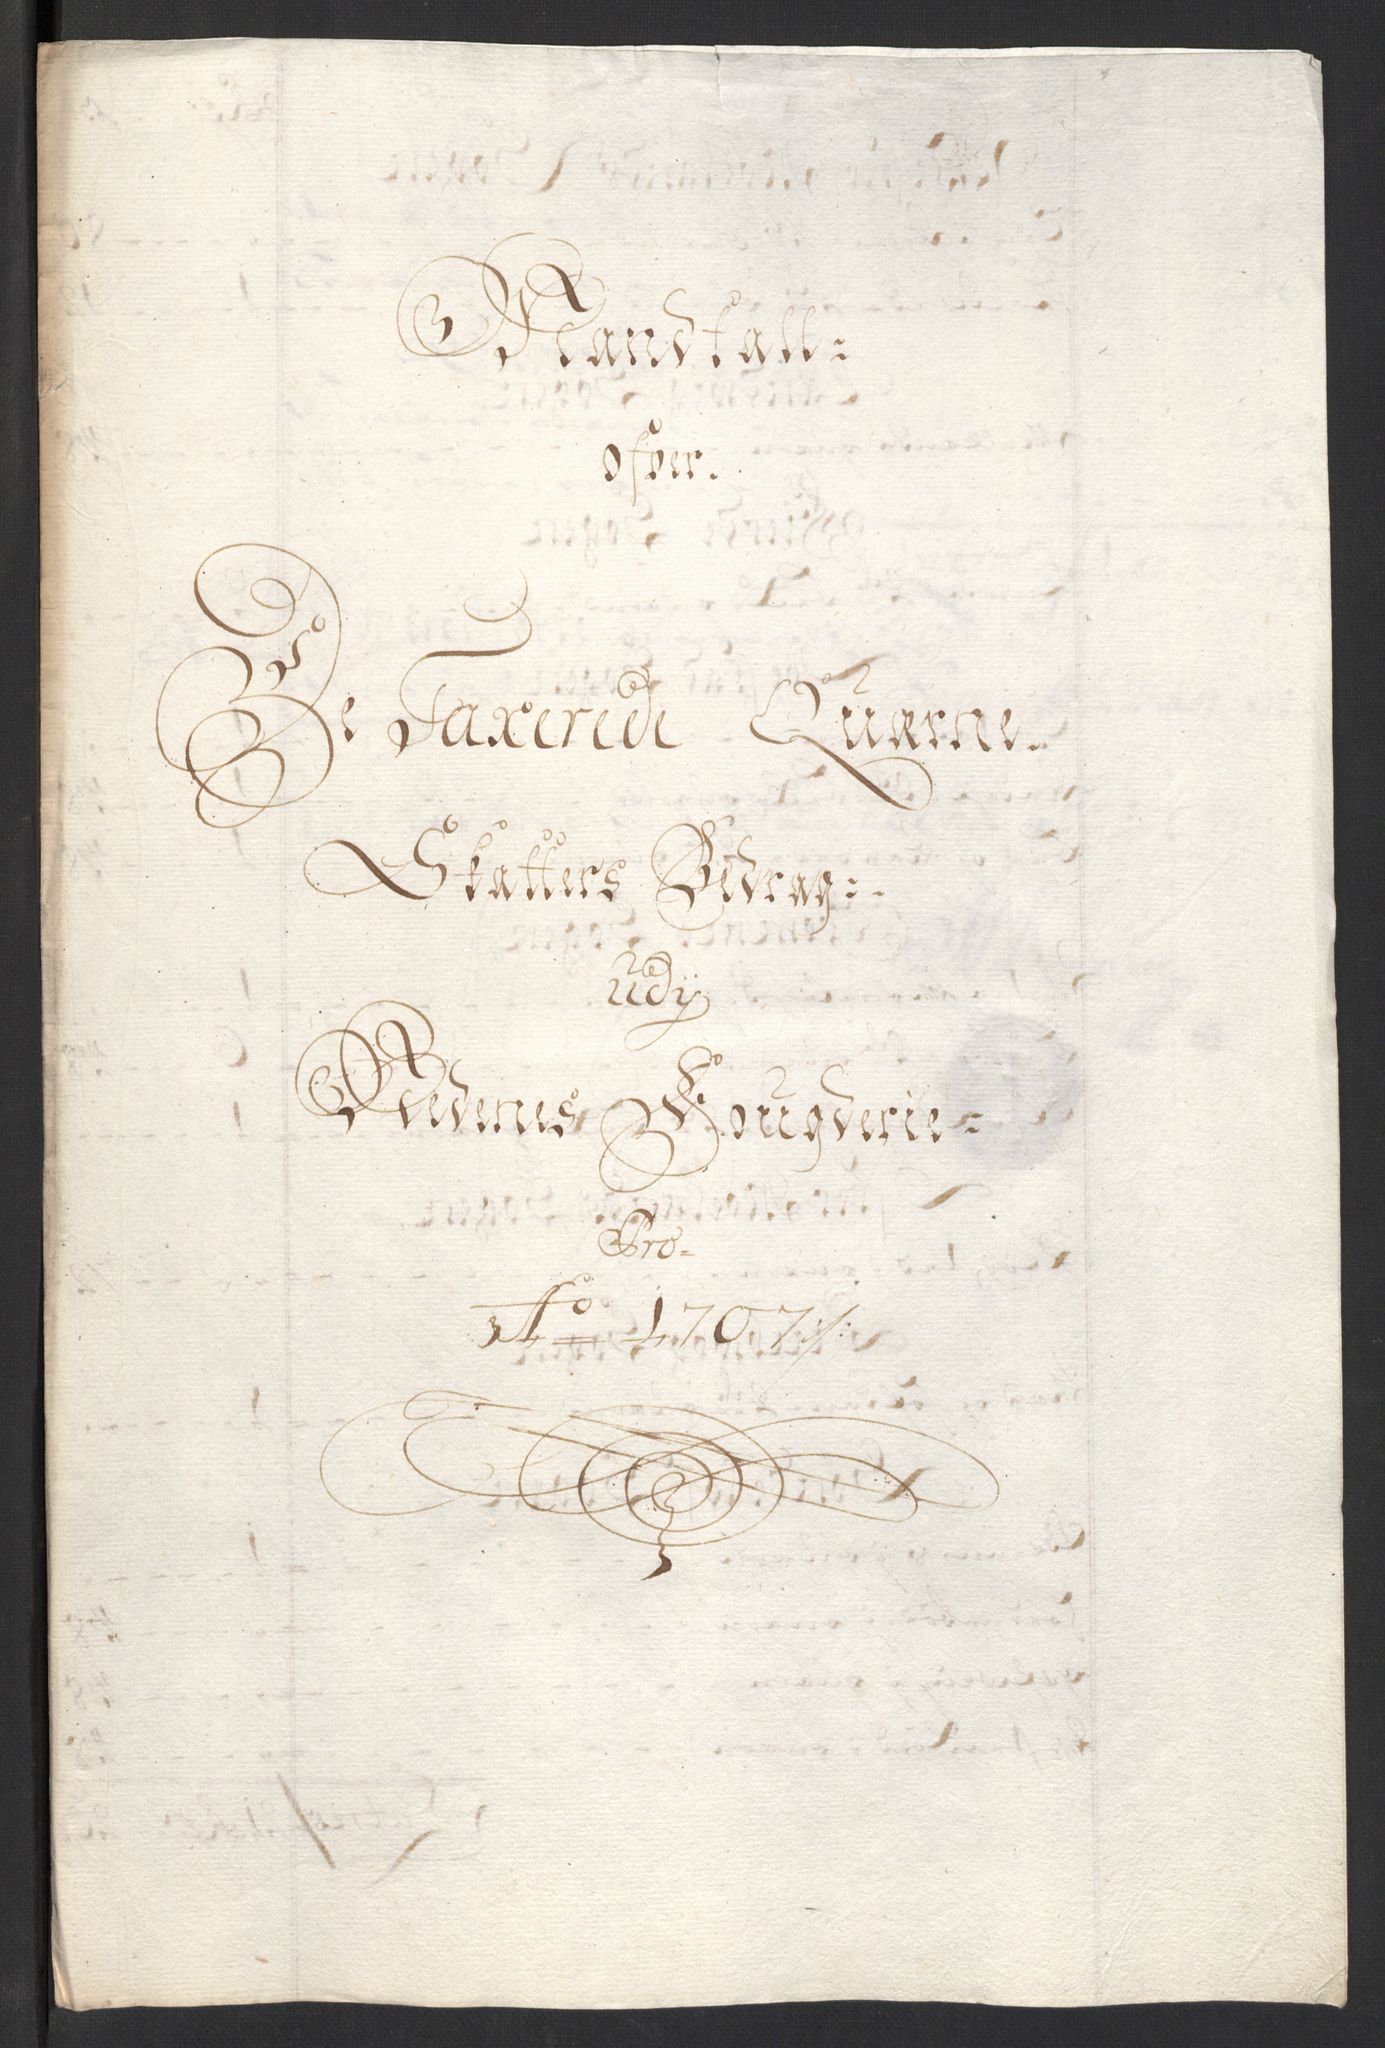 Mandtall
ofver.
De Taxerede Quærne.
Skatters Bedrag:.
udÿ
Nedenes Fougderie
Pro
Ao 1707